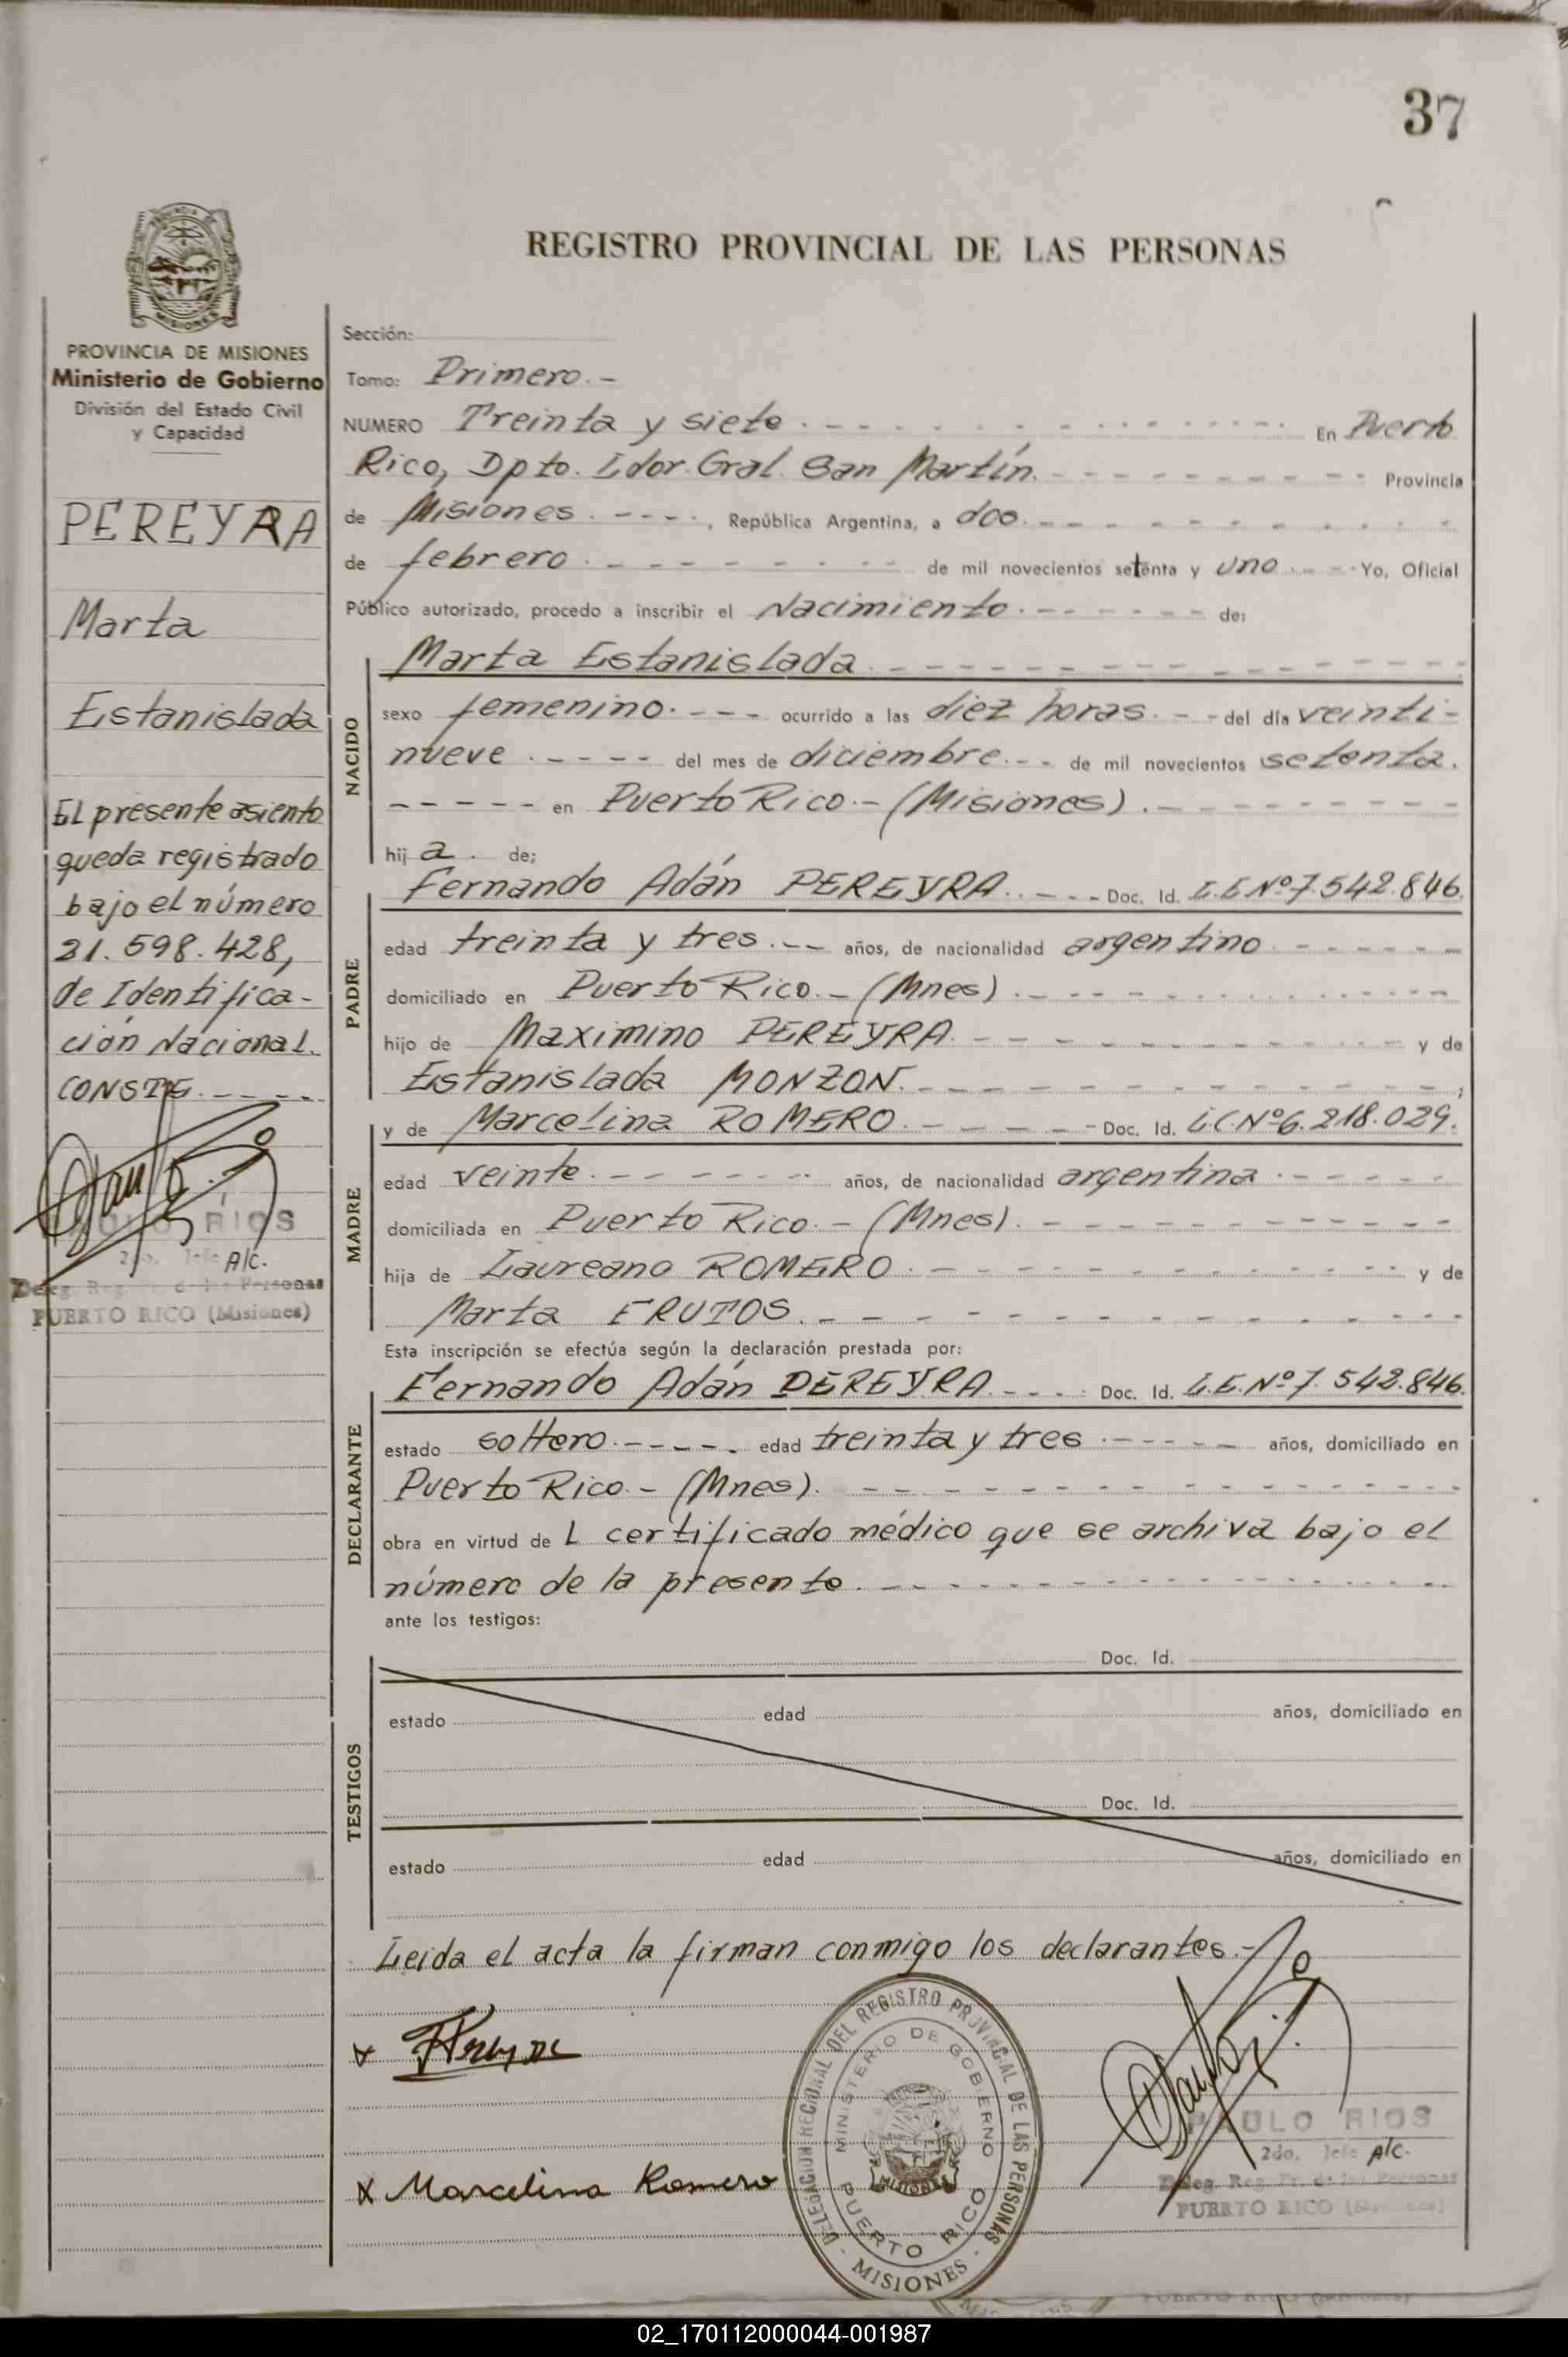 37
REGISTRO PROVINCIAL DE LAS PERSONAS
PROVINCIA DE MISIONES
Ministerio de Gobierno
División del Estado Civil
y Capacidad
PEREYRA
Marta
Estanislada
El presente asiento
queda registrado
bajo el número
21.598.428,
de Identifica-
ción Nacional.
CONSTE.-----
RIOS
2do. Jefe A/C.
Deleg. Reg. Pr. de las Personas
PUERTO RICO (Misiones)
Sección:
Tomo: Primero.-
NUMERO Treinta y siete.- En Puerto
Rico, Dpto. Ldor. Gral. San Martín.- Provincia
de Misiones.----, República Argentina, a dos.-
de febrero.- de mil novecientos setenta y uno.-- Yo, Oficial
Público autorizado, procedo a inscribir el Nacimiento.- de:
NACIDO
Marta Estanislada.-
sexo femenino.--- ocurrido a las diez horas.-- del día veinti-
nueve.---- del mes de diciembre.-- de mil novecientos setenta.
----- en Puerto Rico.-(Misiones).-
hija. de;
PADRE
Fernando Adán PEREYRA.--- Doc. Id. L.E.Nº7.542.846.
edad treinta y tres.-- años, de nacionalidad argentino-----
domiciliado en Puerto Rico.-(Mnes).-
hijo de Maximino PEREYRA.- y de
Estanislada MONZON.- ;
MADRE
y de Marcelina ROMERO.----- Doc. Id. L.C.Nº6.218.029.
edad veinte.- años, de nacionalidad argentina.-----
domiciliada en Puerto Rico.-(Mnes).-
hija de Laureano ROMERO.- y de
Marta FRUTOS.-
Esta inscripción se efectúa según la declaración prestada por:
DECLARANTE
Fernando Adán PEREYRA.---. Doc. Id. L.E.Nº7.542.846.
estado soltero.----- edad treinta y tres.----- años, domiciliado en
Puerto Rico.-(Mnes).-
obra en virtud de L certificado médico que se archiva bajo el
número de la presente.-
ante los testigos:
TESTIGOS
Doc. Id.
estado edad años, domiciliado en
Doc. Id.
estado edad años, domiciliado en
Leida el acta la firman conmigo los declarantes.-
x
x Marcelina Romero
DELEGACION REGIONAL DEL REGISTRO PROVINCIAL DE LAS PERSONAS
MINISTERIO DE GOBIERNO
MISIONES
PUERTO RICO
- MISIONES -
PAULO RIOS
2do. Jefe A/C.
Deleg. Reg. Pr. de las Personas
PUERTO RICO
02_170112000044-001987